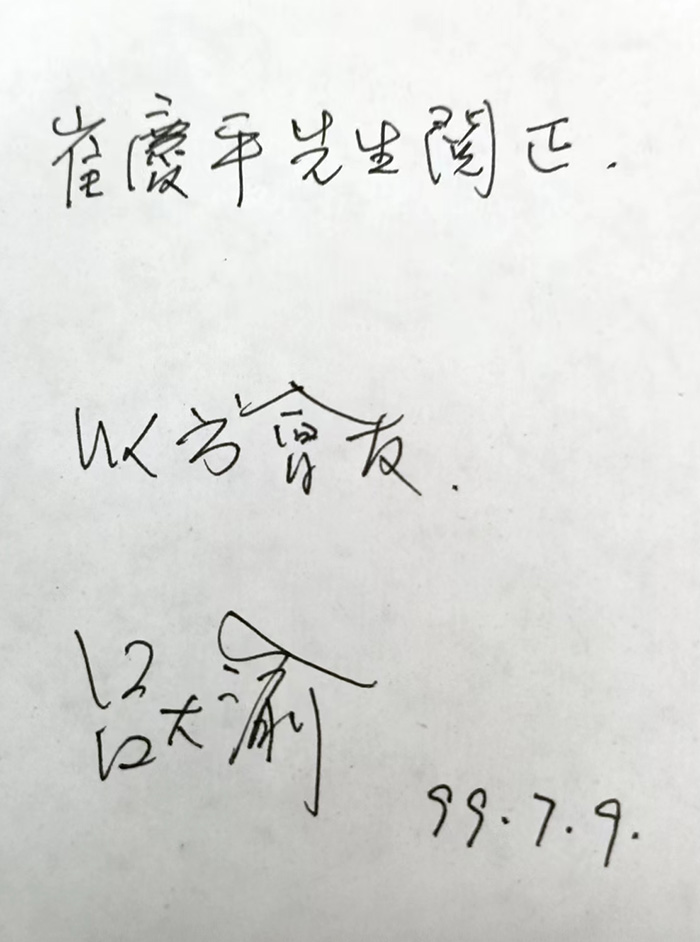 崔慶平先生閱正.
以方會友.
呂大渝
99.7.9.